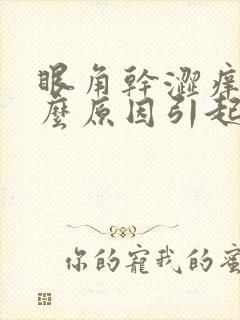 眼角幹澀痒
麼原因引起
你的寵我的蜜